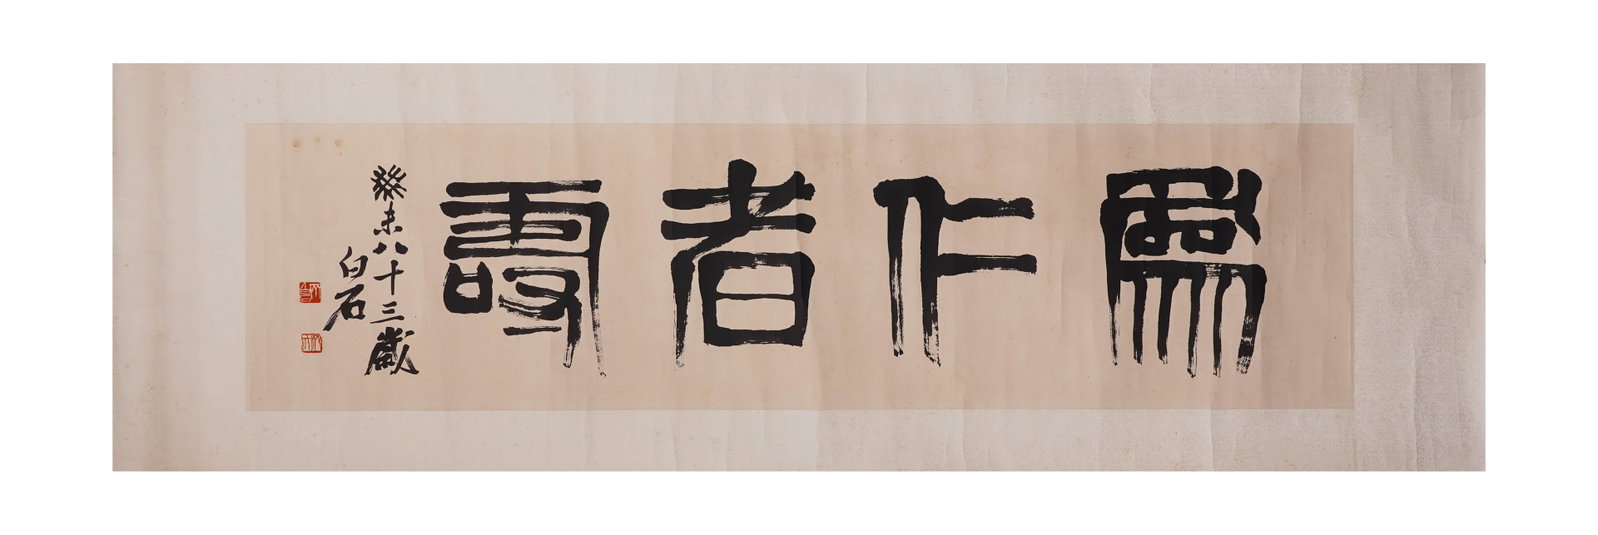 爲仁者壽
癸未八十三歲
白石